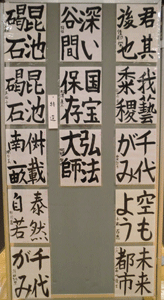 君其
後也
我藝
黍稷
千代
がみ
空も
よう
未来
都市
深い
谷間
国宝
保存
弘法
大師
昆池
碣石
昆池
碣石
俶載
南畝
泰然
自若
千代
がみ